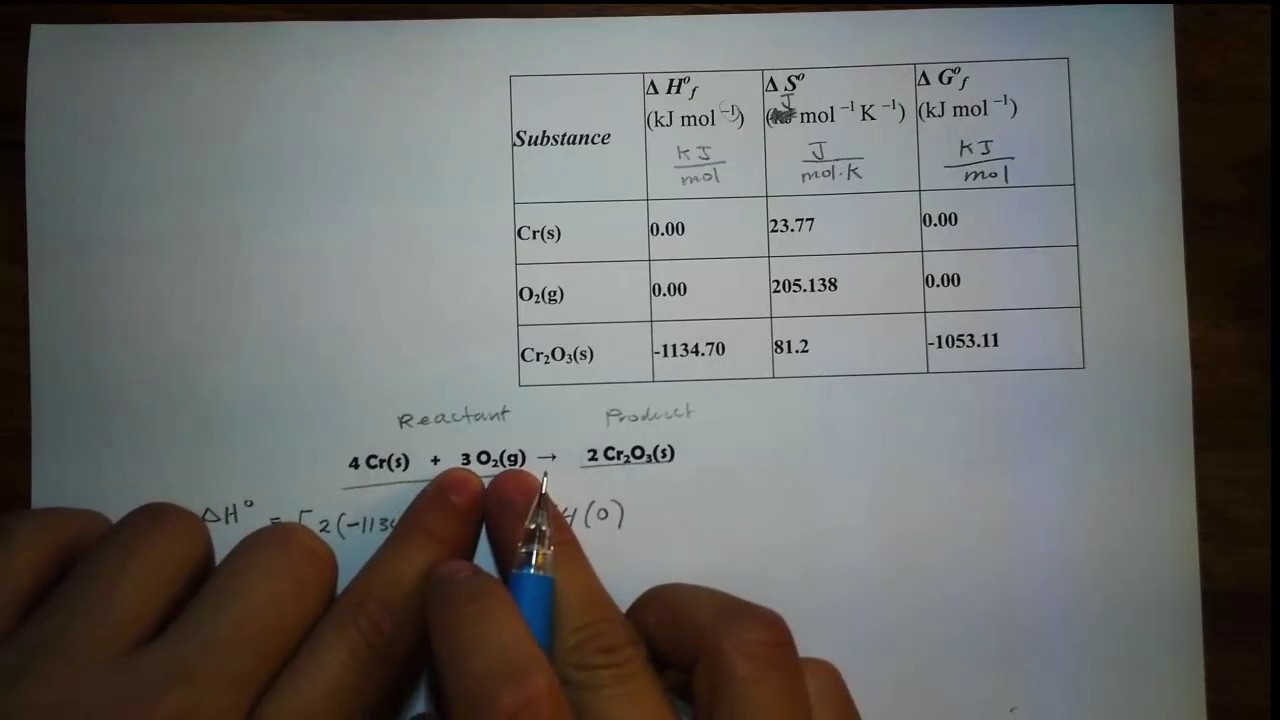 Substance
Δ H°f
(kJ mol ⁻¹)
kJ
mol
Δ S°
J
( mol ⁻¹ K ⁻¹)
J
mol·K
Δ G°f
(kJ mol ⁻¹)
kJ
mol
Cr(s) 0.00 23.77 0.00
O₂(g) 0.00 205.138 0.00
Cr₂O₃(s) -1134.70 81.2 -1053.11
Reactant Product
4 Cr(s) + 3 O₂(g) → 2 Cr₂O₃(s)
ΔH° = [ 2(-113 (0)